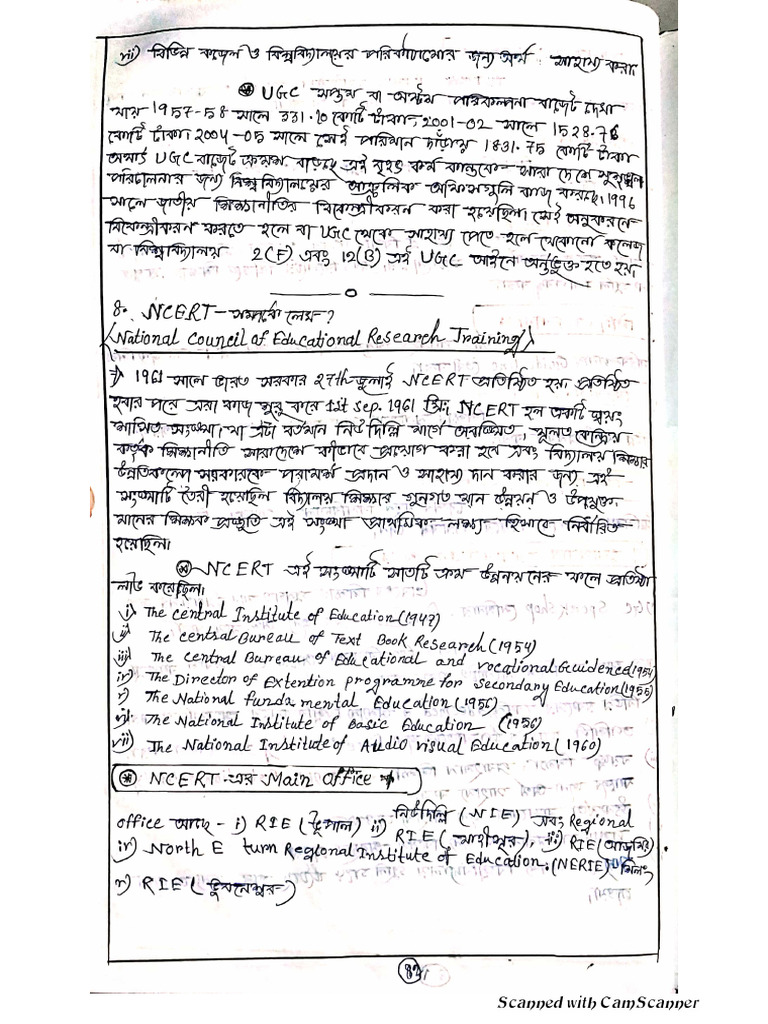 vii) বিভিন্ন কলেজ ও বিশ্ববিদ্যালয়ের পরিকাঠামোর জন্য অর্থ সাহায্য করা।
⊛ UGC সপ্তম বা অষ্টম পরিকল্পনা বাজেট দেখা
যায় 1957-58 সালে 331.10 কোটি টাকা, 2001-02 সালে 1528.76
কোটি টাকা 2004-05 সালে সেই পরিমান দাঁড়ায় 1831.75 কোটি টাকা
অর্থাৎ UGC বাজেট ক্রমশ বাড়ছে এই বৃহৎ কর্ম কান্ডকে সারা দেশে সুশৃঙ্খল
পরিচালনার জন্য বিশ্ববিদ্যালয়ের আঞ্চলিক অফিসগুলি কাজ করছে। 1996
সালে জাতীয় শিক্ষানীতির বিকেন্দ্রীকরন করা হয়েছিল। সেই অনুকরনে
বিকেন্দ্রীকরন করতে হলে বা UGC থেকে সাহায্য পেতে হলে যেকোনো কলেজ
বা বিশ্ববিদ্যালয় 2(F) এবং 12(B) এই UGC আইনে অর্ন্তভুক্ত হতে হয়।
8. NCERT - সম্পর্কে লেখ?
(National Council of Educational Research Training)
1961 সালে ভারত সরকার 27th জুলাই NCERT প্রতিষ্ঠিত হয়। প্রতিষ্ঠিত
হবার পরে এরা কাজ শুরু করে 1st Sep. 1961 খ্রিঃ NCERT হল একটি স্বয়ং
শাসিত সংস্থা, যা এটা বর্তমান নিউ দিল্লি মার্গে অবস্থিত, মূলত কেন্দ্রিয়
কর্তৃক শিক্ষানীতি সারাদেশে কীভাবে প্রয়োগ করা হবে এবং বিদ্যালয় শিক্ষার
উন্নতিকল্পে সরকারকে পরামর্শ প্রদান ও সাহায্য দান করার জন্য এই
সংস্থাটি তৈরী হয়েছিল বিদ্যালয় শিক্ষার গুনগত মান উন্নয়ন ও উপযুক্ত
মানের শিক্ষক প্রস্তুতি এই সংস্থা প্রাথমিক লক্ষ্য হিসাবে নির্ধারিত
হয়েছিল।
⊛ NCERT এই সংস্থাটি সাতটি ক্রম উন্নয়নের ফলে প্রতিষ্ঠা
লাভ করেছিল।
i) The Central Institute of Education (1947)
ii) The central Bureau of Text Book Research (1954)
iii) The Central Bureau of Educational and vocational Guidence (1954)
iv) The Director of Extention programme for Secondary Education (1955)
v) The National funda mental Education (1956)
vi) The National Institute of Basic Education (1956)
vii) The National Institute of Audio visual Education (1960)
⊛ NCERT-এর Main Office
নিউদিল্লি (NIE) এবং Regional
office আছে - i) RIE (ভূপাল) ii) RIE (মহীশূর), iii) RIE (আজমির)
iv) North E turn Regional Institute of Education. (NERIE) শিলং
v) RIE (ভুবনেশ্বর)
Scanned with CamScanner